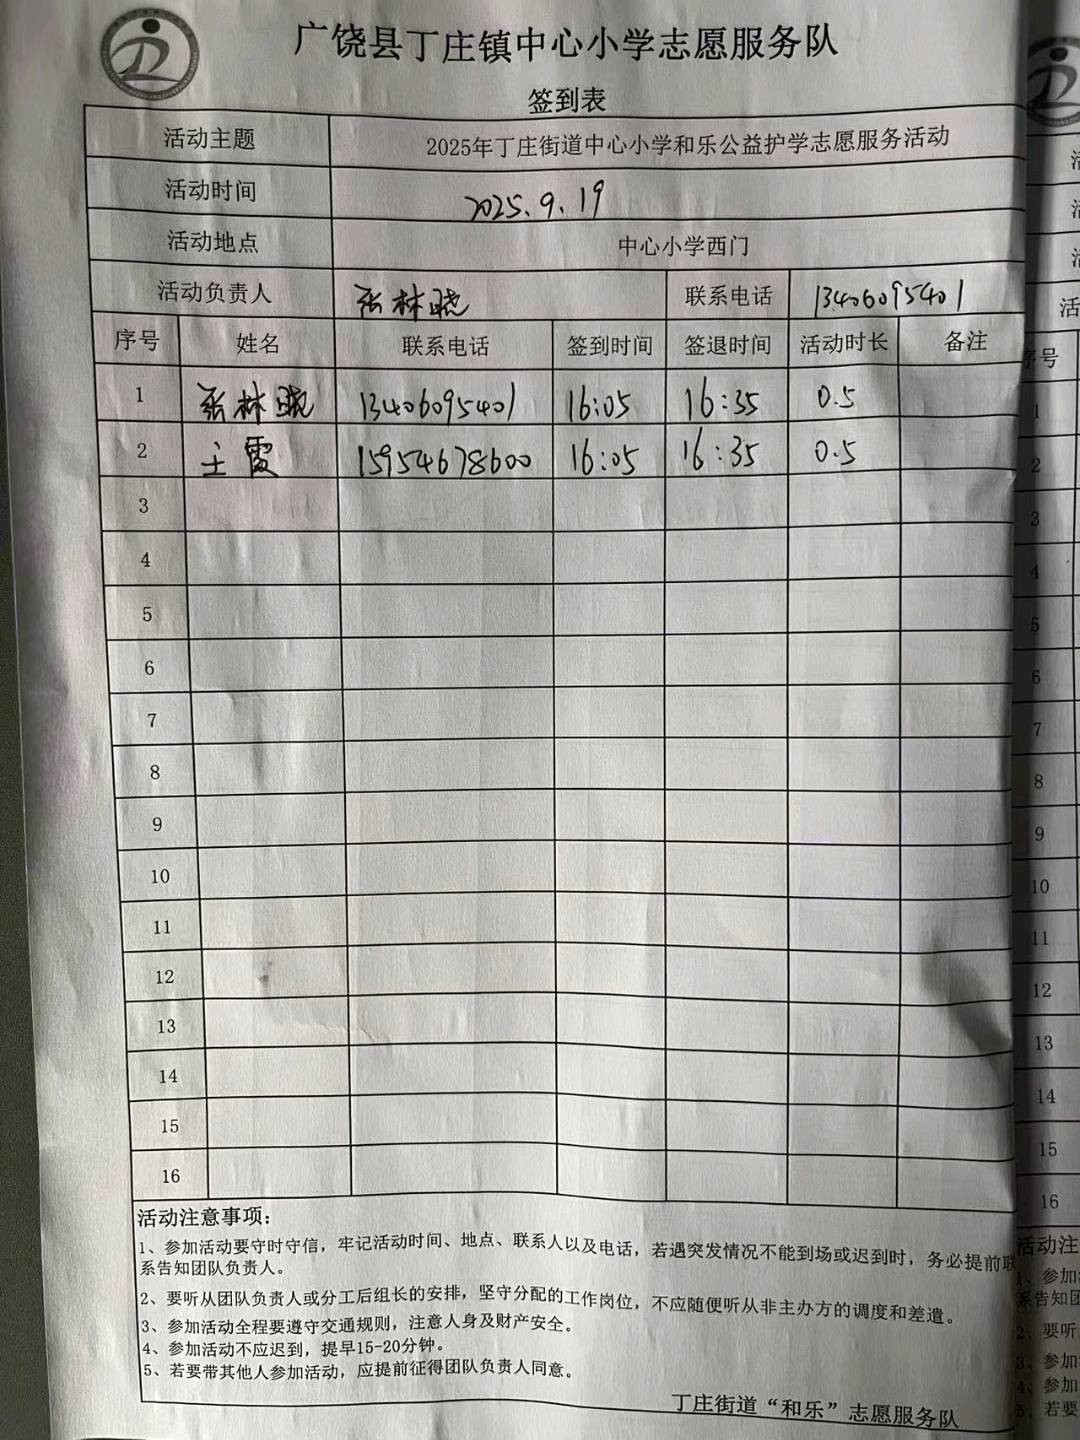 广饶县丁庄镇中心小学志愿服务队
签到表
活动主题 2025年丁庄街道中心小学和乐公益护学志愿服务活动
活动时间 2025.9.19
活动地点 中心小学西门
活动负责人 张林晓 联系电话 13406095401
序号 姓名 联系电话 签到时间 签退时间 活动时长 备注
1 张林晓 13406095401 16:05 16:35 0.5
2 王霞 15954678600 16:05 16:35 0.5
3
4
5
6
7
8
9
10
11
12
13
14
15
16
活动注意事项：
1、参加活动要守时守信，牢记活动时间、地点、联系人以及电话，若遇突发情况不能到场或迟到时，务必提前联
系告知团队负责人。
2、要听从团队负责人或分工后组长的安排，坚守分配的工作岗位，不应随便听从非主办方的调度和差遣。
3、参加活动全程要遵守交通规则，注意人身及财产安全。
4、参加活动不应迟到，提早15-20分钟。
5、若要带其他人参加活动，应提前征得团队负责人同意。
丁庄街道“和乐”志愿服务队
序号
1
2
3
4
5
6
7
8
9
10
11
12
13
14
15
16
活动注
1、参加
系告知团
2、要听
3、参加
4、参加
5、若要